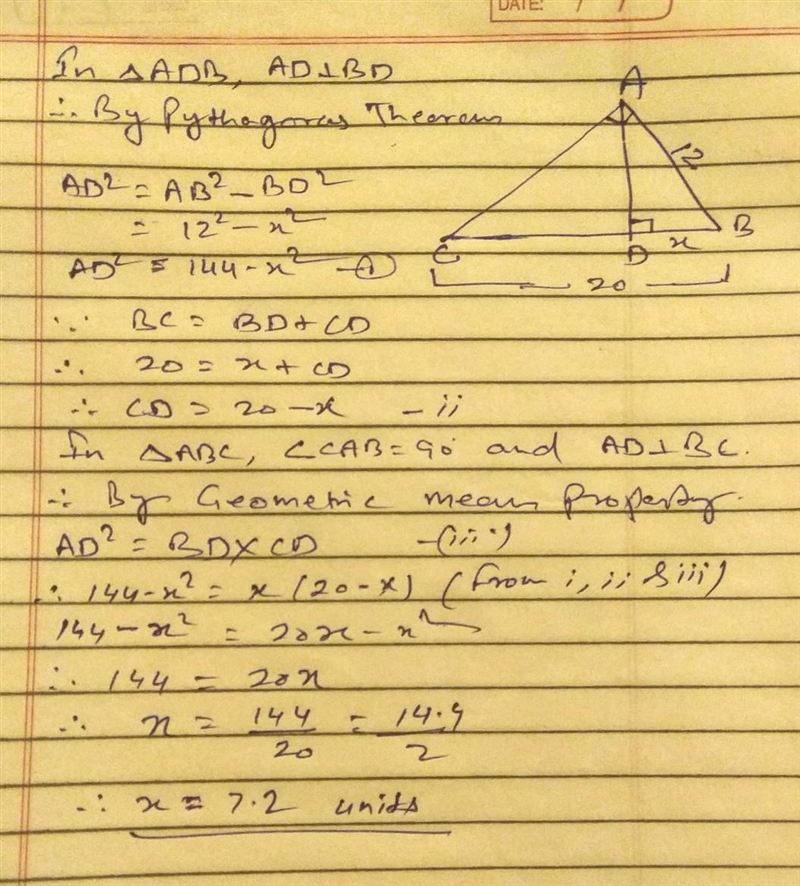 DATE: / /
In △ADB, AD⊥BD
∴ By Pythagoras Theorem
AD² = AB² - BD²
= 12² - x²
AD² = 144 - x² - ①
A
12
C
D
x
B
20
∵ BC = BD + CD
∴ 20 = x + CD
∴ CD = 20 - x - ii
In △ABC, ∠CAB = 90° and AD⊥BC.
∴ By Geometric mean Property.
AD² = BD × CD - (iii)
∴ 144 - x² = x (20 - x) (From i, ii & iii)
144 - x² = 20x - x²
∴ 144 = 20x
∴ x = 144/20 = 14.4/2
∴ x = 7.2 units